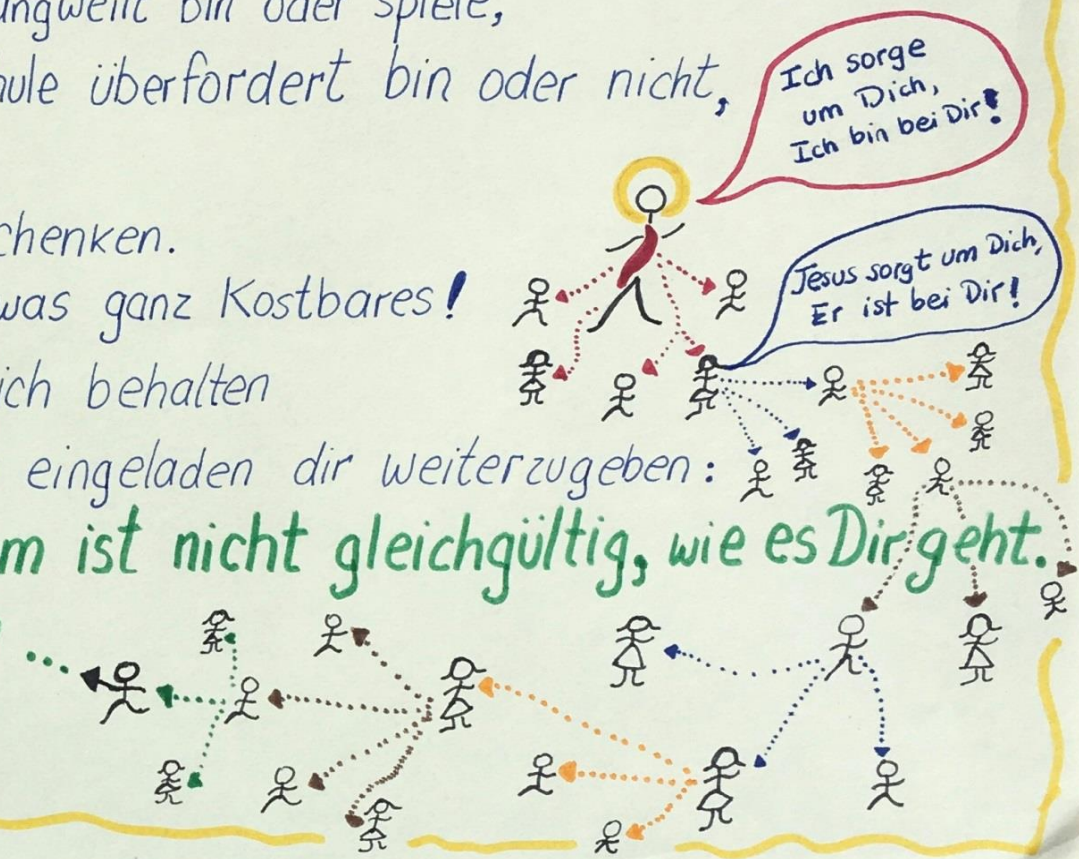 bin oder spiele,
überfordert bin oder nicht,
Ich sorge
um Dich,
Ich bin bei Dir!
was ganz Kostbares!
Jesus sorgt um Dich,
Er ist bei Dir!
behalten
eingeladen dir weiterzugeben:
ist nicht gleichgültig, wie es Dir geht.